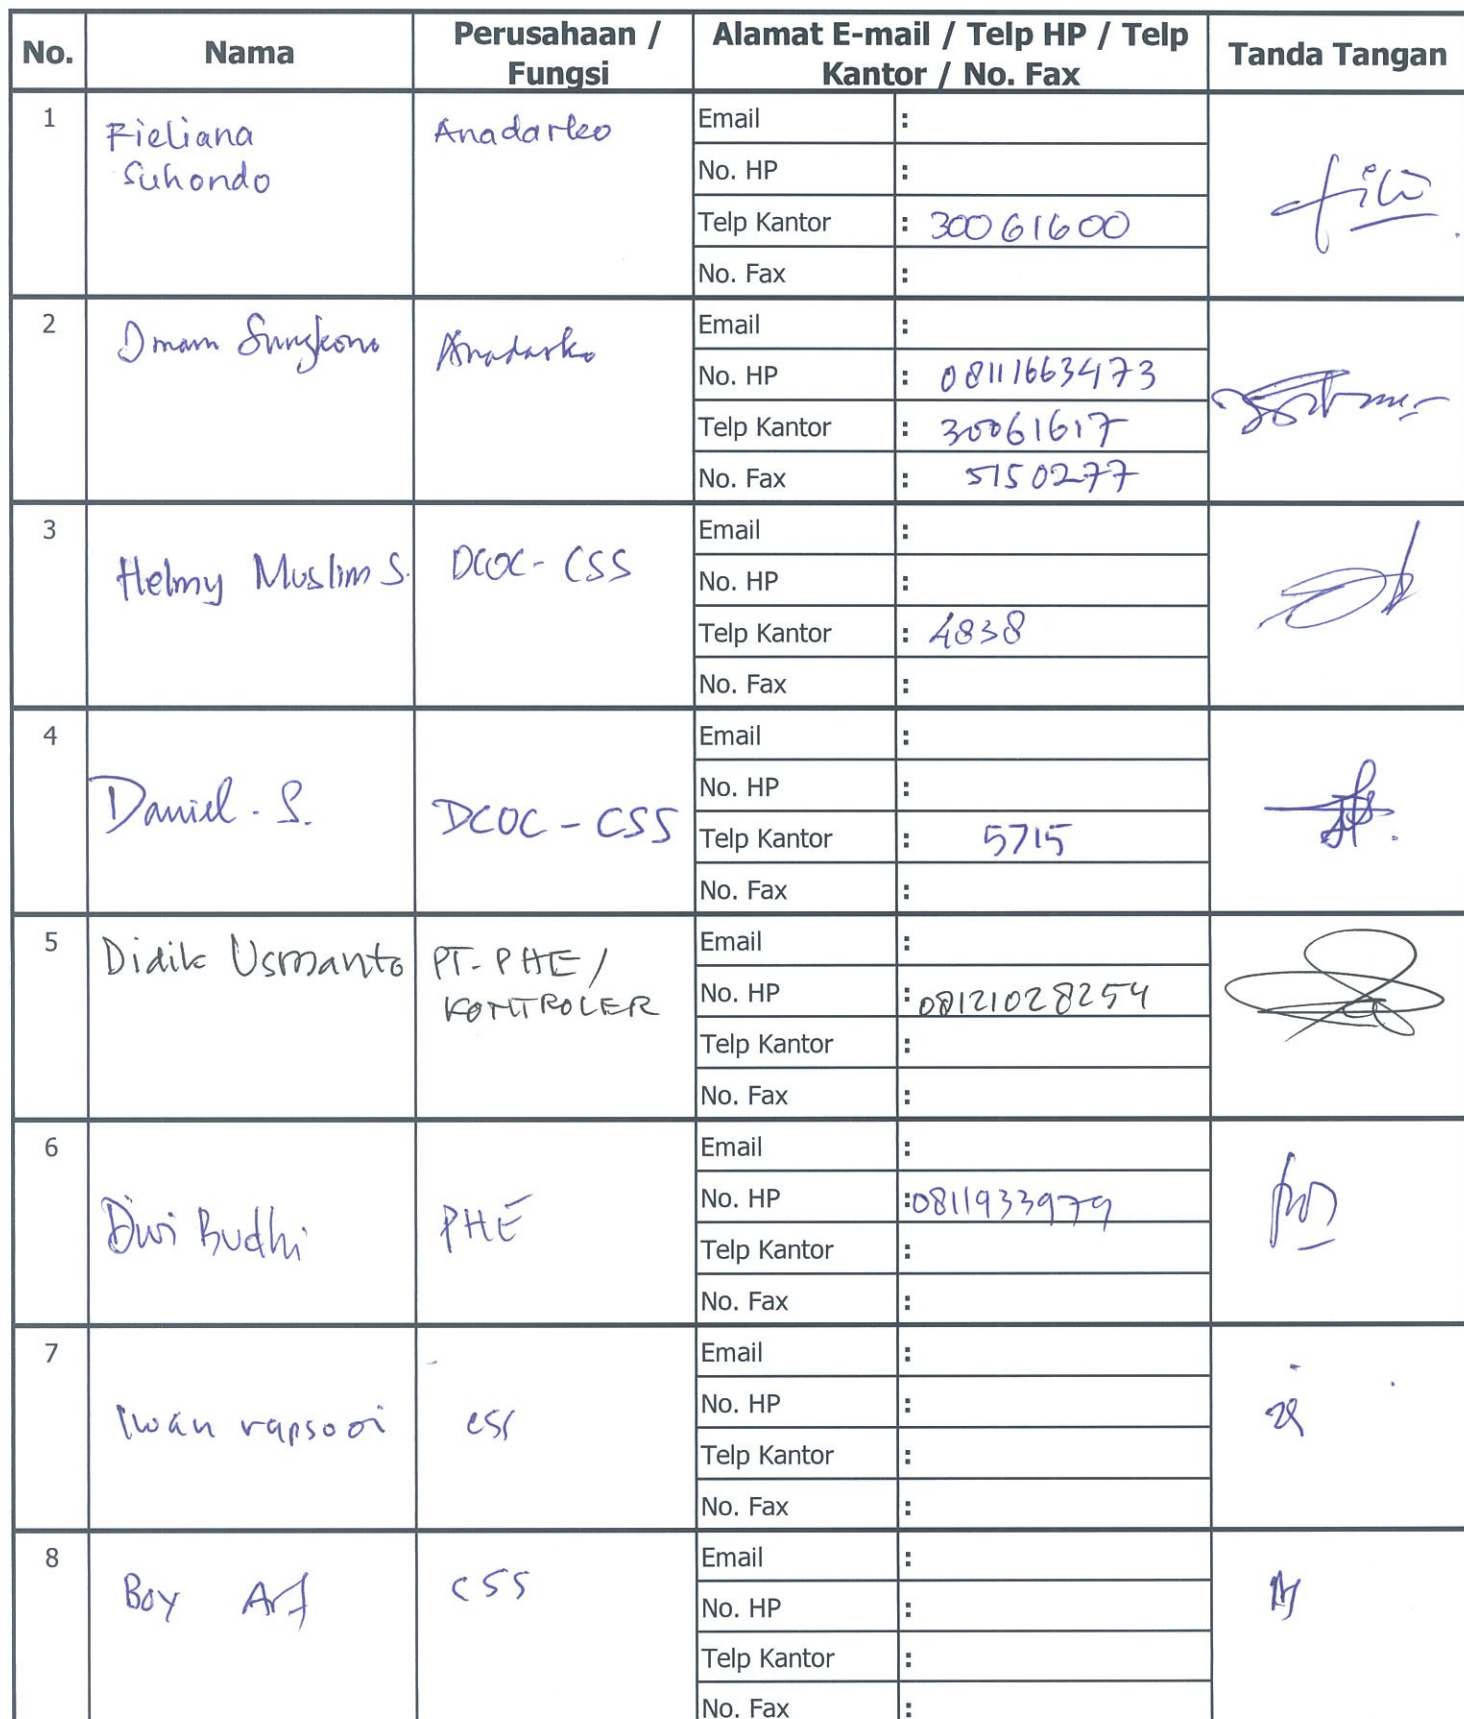 No. Nama Perusahaan / Fungsi Alamat E-mail / Telp HP / Telp Kantor / No. Fax Tanda Tangan
1 Fieliana Suhondo Anadarko
Email :
No. HP :
Telp Kantor : 30061600
No. Fax :
2 Imam Sungkono Anadarko
Email :
No. HP : 08111663473
Telp Kantor : 30061617
No. Fax : 5150277
3 Helmy Muslim S. DCOC - CSS
Email :
No. HP :
Telp Kantor : 4838
No. Fax :
4 Daniel . S. DCOC - CSS
Email :
No. HP :
Telp Kantor : 5715
No. Fax :
5 Didik Usmanto PT. PHE / KONTROLER
Email :
No. HP : 08121028254
Telp Kantor :
No. Fax :
6 Dwi Budhi PHE
Email :
No. HP : 0811933979
Telp Kantor :
No. Fax :
7 Iwan CSS
Email :
No. HP :
Telp Kantor :
No. Fax :
8 Boy Arf CSS
Email :
No. HP :
Telp Kantor :
No. Fax :